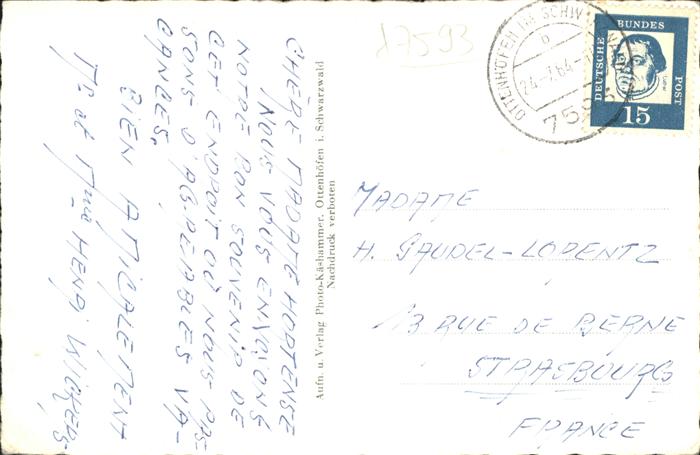 CHERE MADAME HORTENSE
NOUS VOUS ENVOYONS
NOTRE BON SOUVENIR DE
CET ENDROIT OÙ NOUS PAS-
SONS D'AGREABLES VA-
CANCES.
BIEN AMICALEMENT
Mr et Mme HENRI
Aufn. u. Verlag Photo-Käshammer, Ottenhöfen i. Schwarzwald
Nachdruck verboten
17593
OTTENHÖFEN IM SCHWARZWALD
b
24.-7.64.-
DEUTSCHE BUNDES POST
Luther
15
MADAME
H. GAUDEL-LORENTZ
13 RUE DE BERNE
STRASBOURG
FRANCE